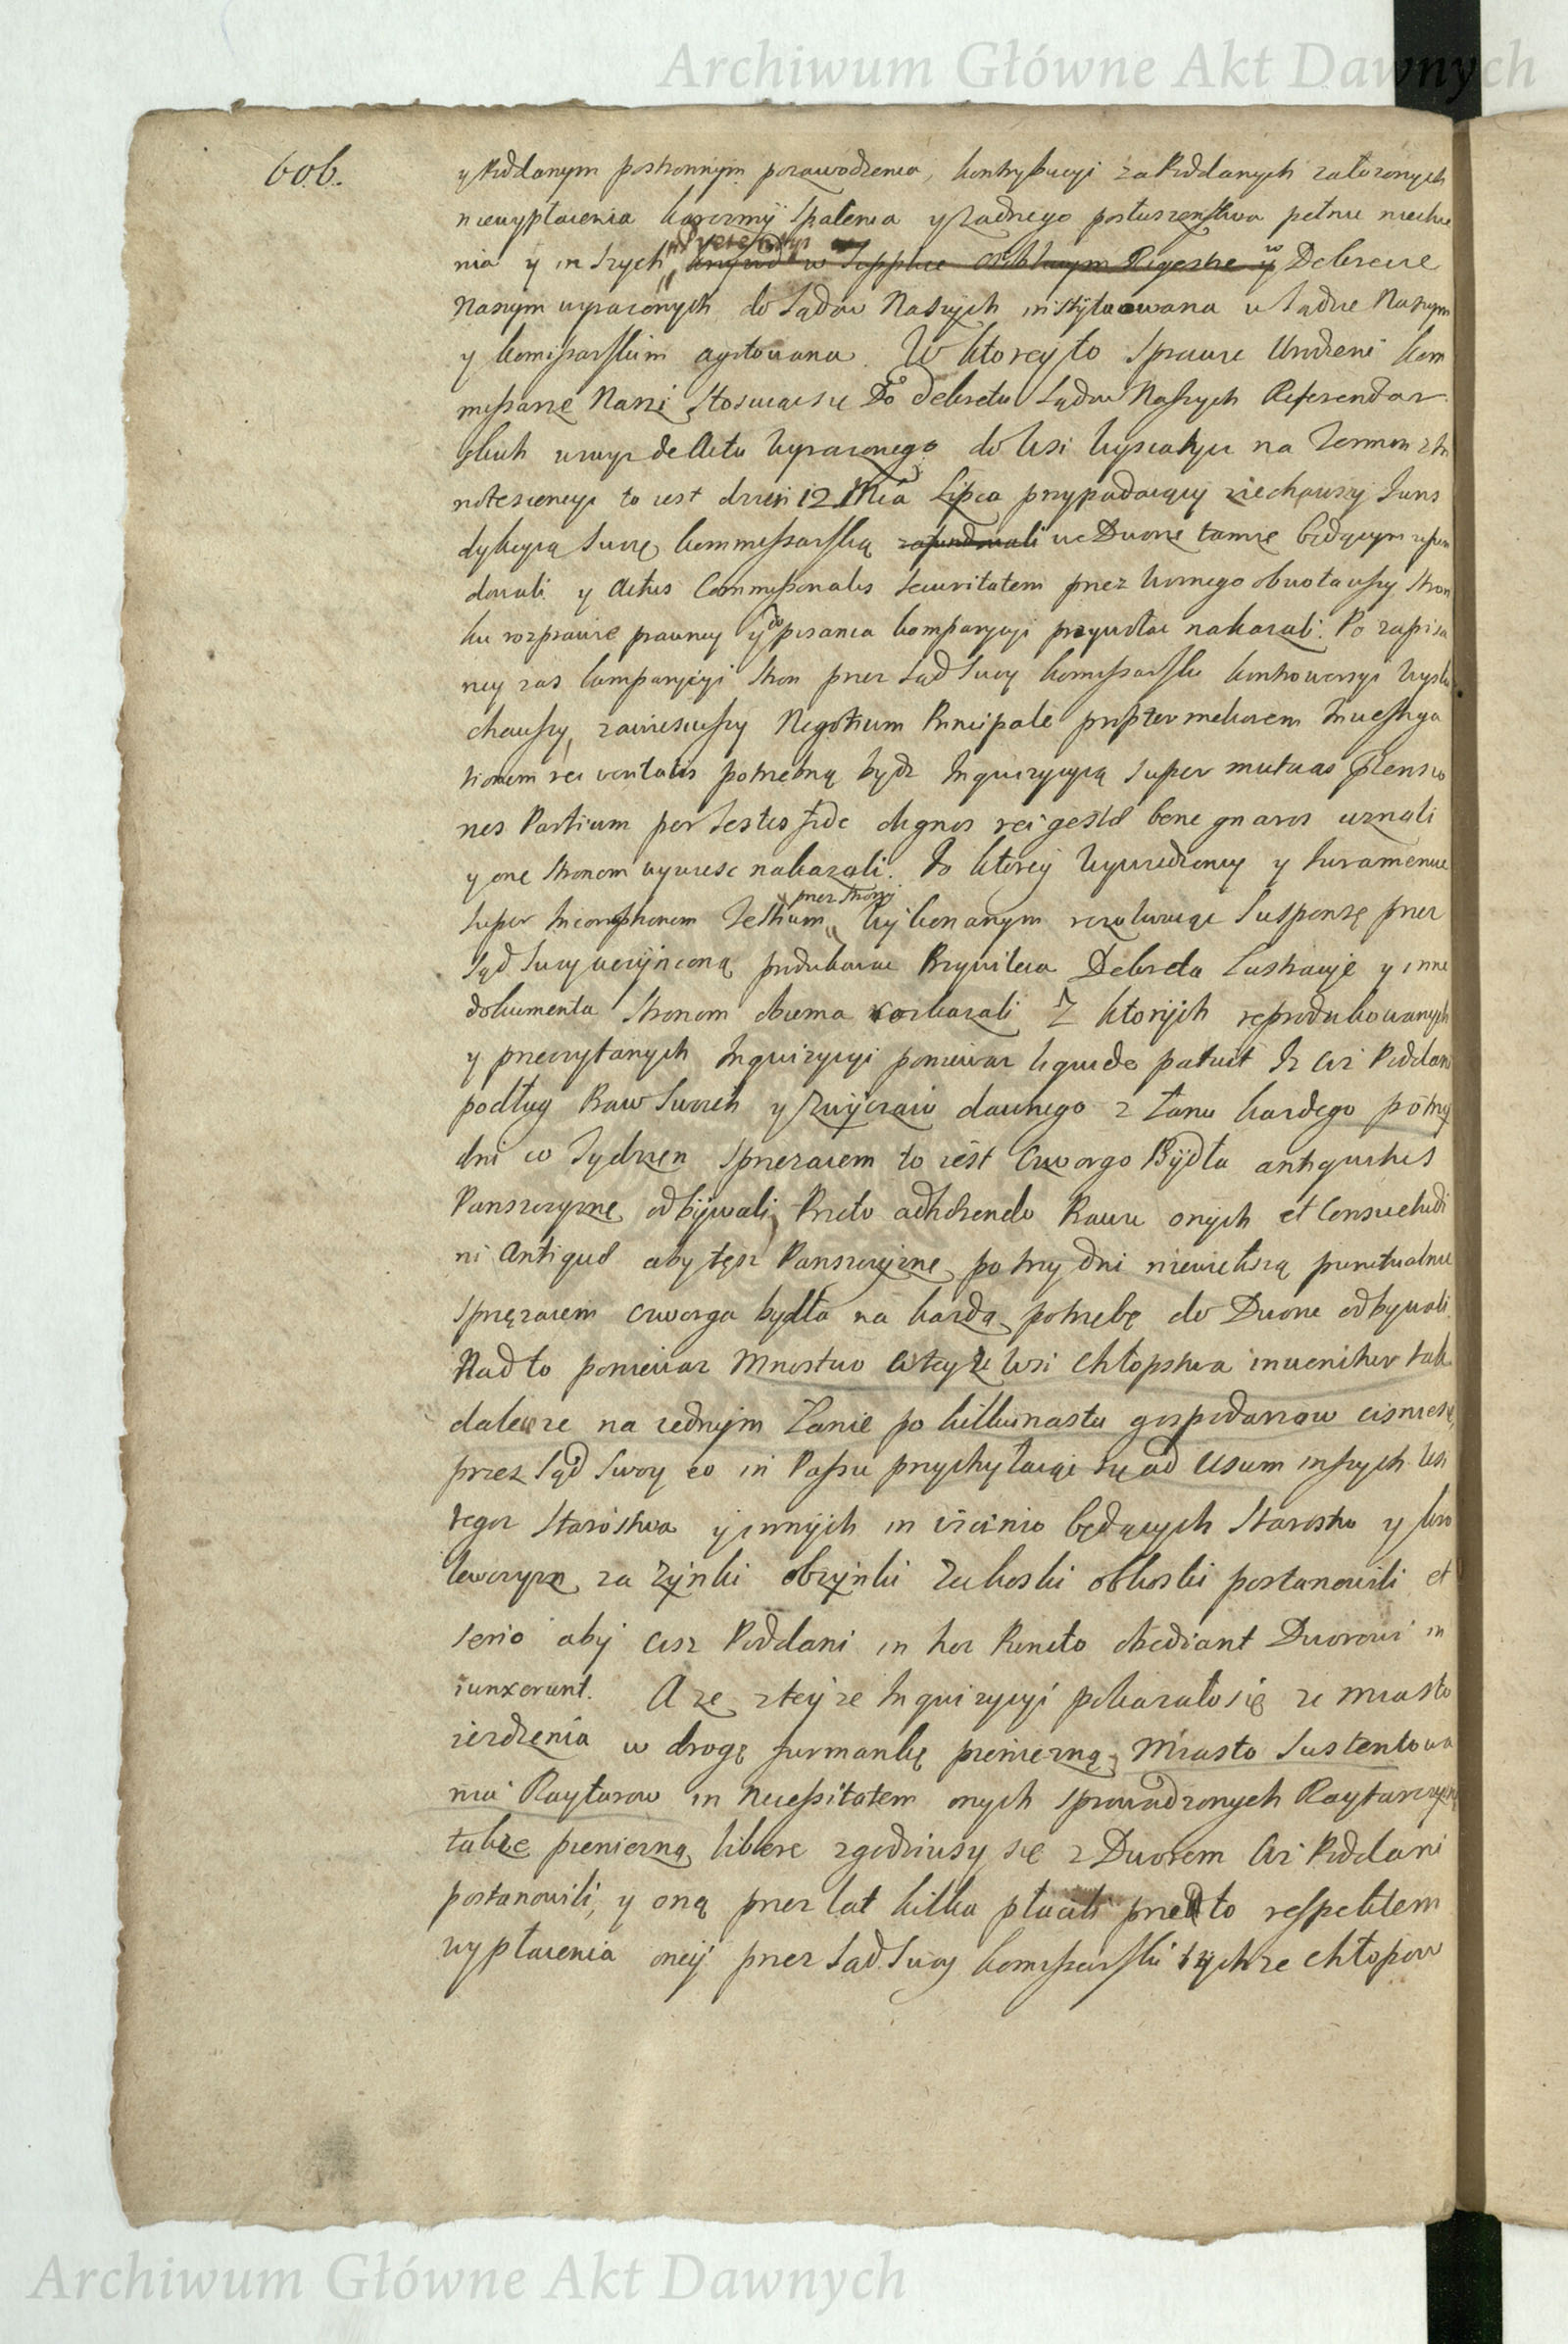 Archiwum Główne Akt Dawnych
606.
y Poddanym postronnym pozawodzenia, kontrybucyi za Poddanych założonych
niewypłacenia karczmy Spalenia y żadnego posłuszenstwa pełnie niechce
nia y inszych w Dekrecie
Naszym wyrażonych do Sądow Naszych instytuowana w Sądzie Naszym
y kommissarskim agitowana. W ktorey to Sprawie Urodzeni kom
missarze Nasi Stosuiąc się Do dekretu Sądow Naszych Referendar
skich wwyż de Actu wyrażonego do Wsi na Termin z In
notescencyi to iest dzień 12 Mca Lipca przypadaiący ziechawszy Juris
dykcyią Swoię kommissarską zafundowali we Dworze tamże będącym ufun
dowali y Actus Commissionalis Securitatem przez Woznego obwoławszy Stron
ku rozprawie prawney y do pisania komparycyi przywołać nakazali. Po zapisa
ney zas komparycyi Stron przez Sąd Swoy kommissarski kontrowersyi wysłu
chawszy, zawiesiwszy Negotium Principale propter meliorem Investiga
tionem rei veritatis potrzebną bydz Inquizycyią Super mutuas Offensio
nes Partium per Testes fide dignos rei gestæ bene gnaros uznali
y one Stronom wywiesc nakazali. Po ktorey wywiedzioney y Juramencie
Super Inconuptionem Testium przez Strony wykonanym rezolwuiąc Suspensę przez
Sąd Swoy uczynioną produkować Przywileia Dekreta Lustracye y inne
dokumenta Stronom obiema rozkazali Z ktorych reprodukowanych
y przeczytanych Inquizycyi ponieważ liquido patuit Iż ciż Poddani
podług Praw Swoich y Zwyczaiu dawnego z Łanu każdego po trzy
dni w Tydzien Sprzężaiem to iest Czworgo Bydła antiquitus
Panszczyznę odbywali, Przeto adhærendo Prawu onych et Consuetudi
ni Antiquæ aby tęsz Panszczyznę po trzy dni niewiększą punctualnie
Sprzężaiem czworga bydła na każdą potrzebę do Dworu odbywali.
Nad to ponieważ Mnostwo w teyże Wsi Chłopstwa invenitur tak
dalece że na iednym Łanie po kilkunastu gospodarzow ciśnie się,
przez Sąd Swoy eo in Passu przychylaiąc się ad Usum inszych Wsi
tegoż Starostwa y innych in vicinio będących Starostw y kro
lewszczyzn za żynki obżynki Zakoski obkoski postanowili et
serio aby cisz Poddani in hoc Puncto obediant Dworowi in
iunxerunt. A że z teyże Inquizycyi pokazało się że miasto
ieżdżenia w drogę furmankę pieniężną, Miasto Sustentowa
nia Raytarow in Necessitatem onych sprowadzonych Raytarszczyznę
także pieniężną libere zgodziwszy się z Dworem Ciż Poddani
postanowili, y oną przez lat kilka płacili przeto respektem
wypłacenia oney przez Sąd Swoy kommissarski tychże chłopow
Archiwum Główne Akt Dawnych